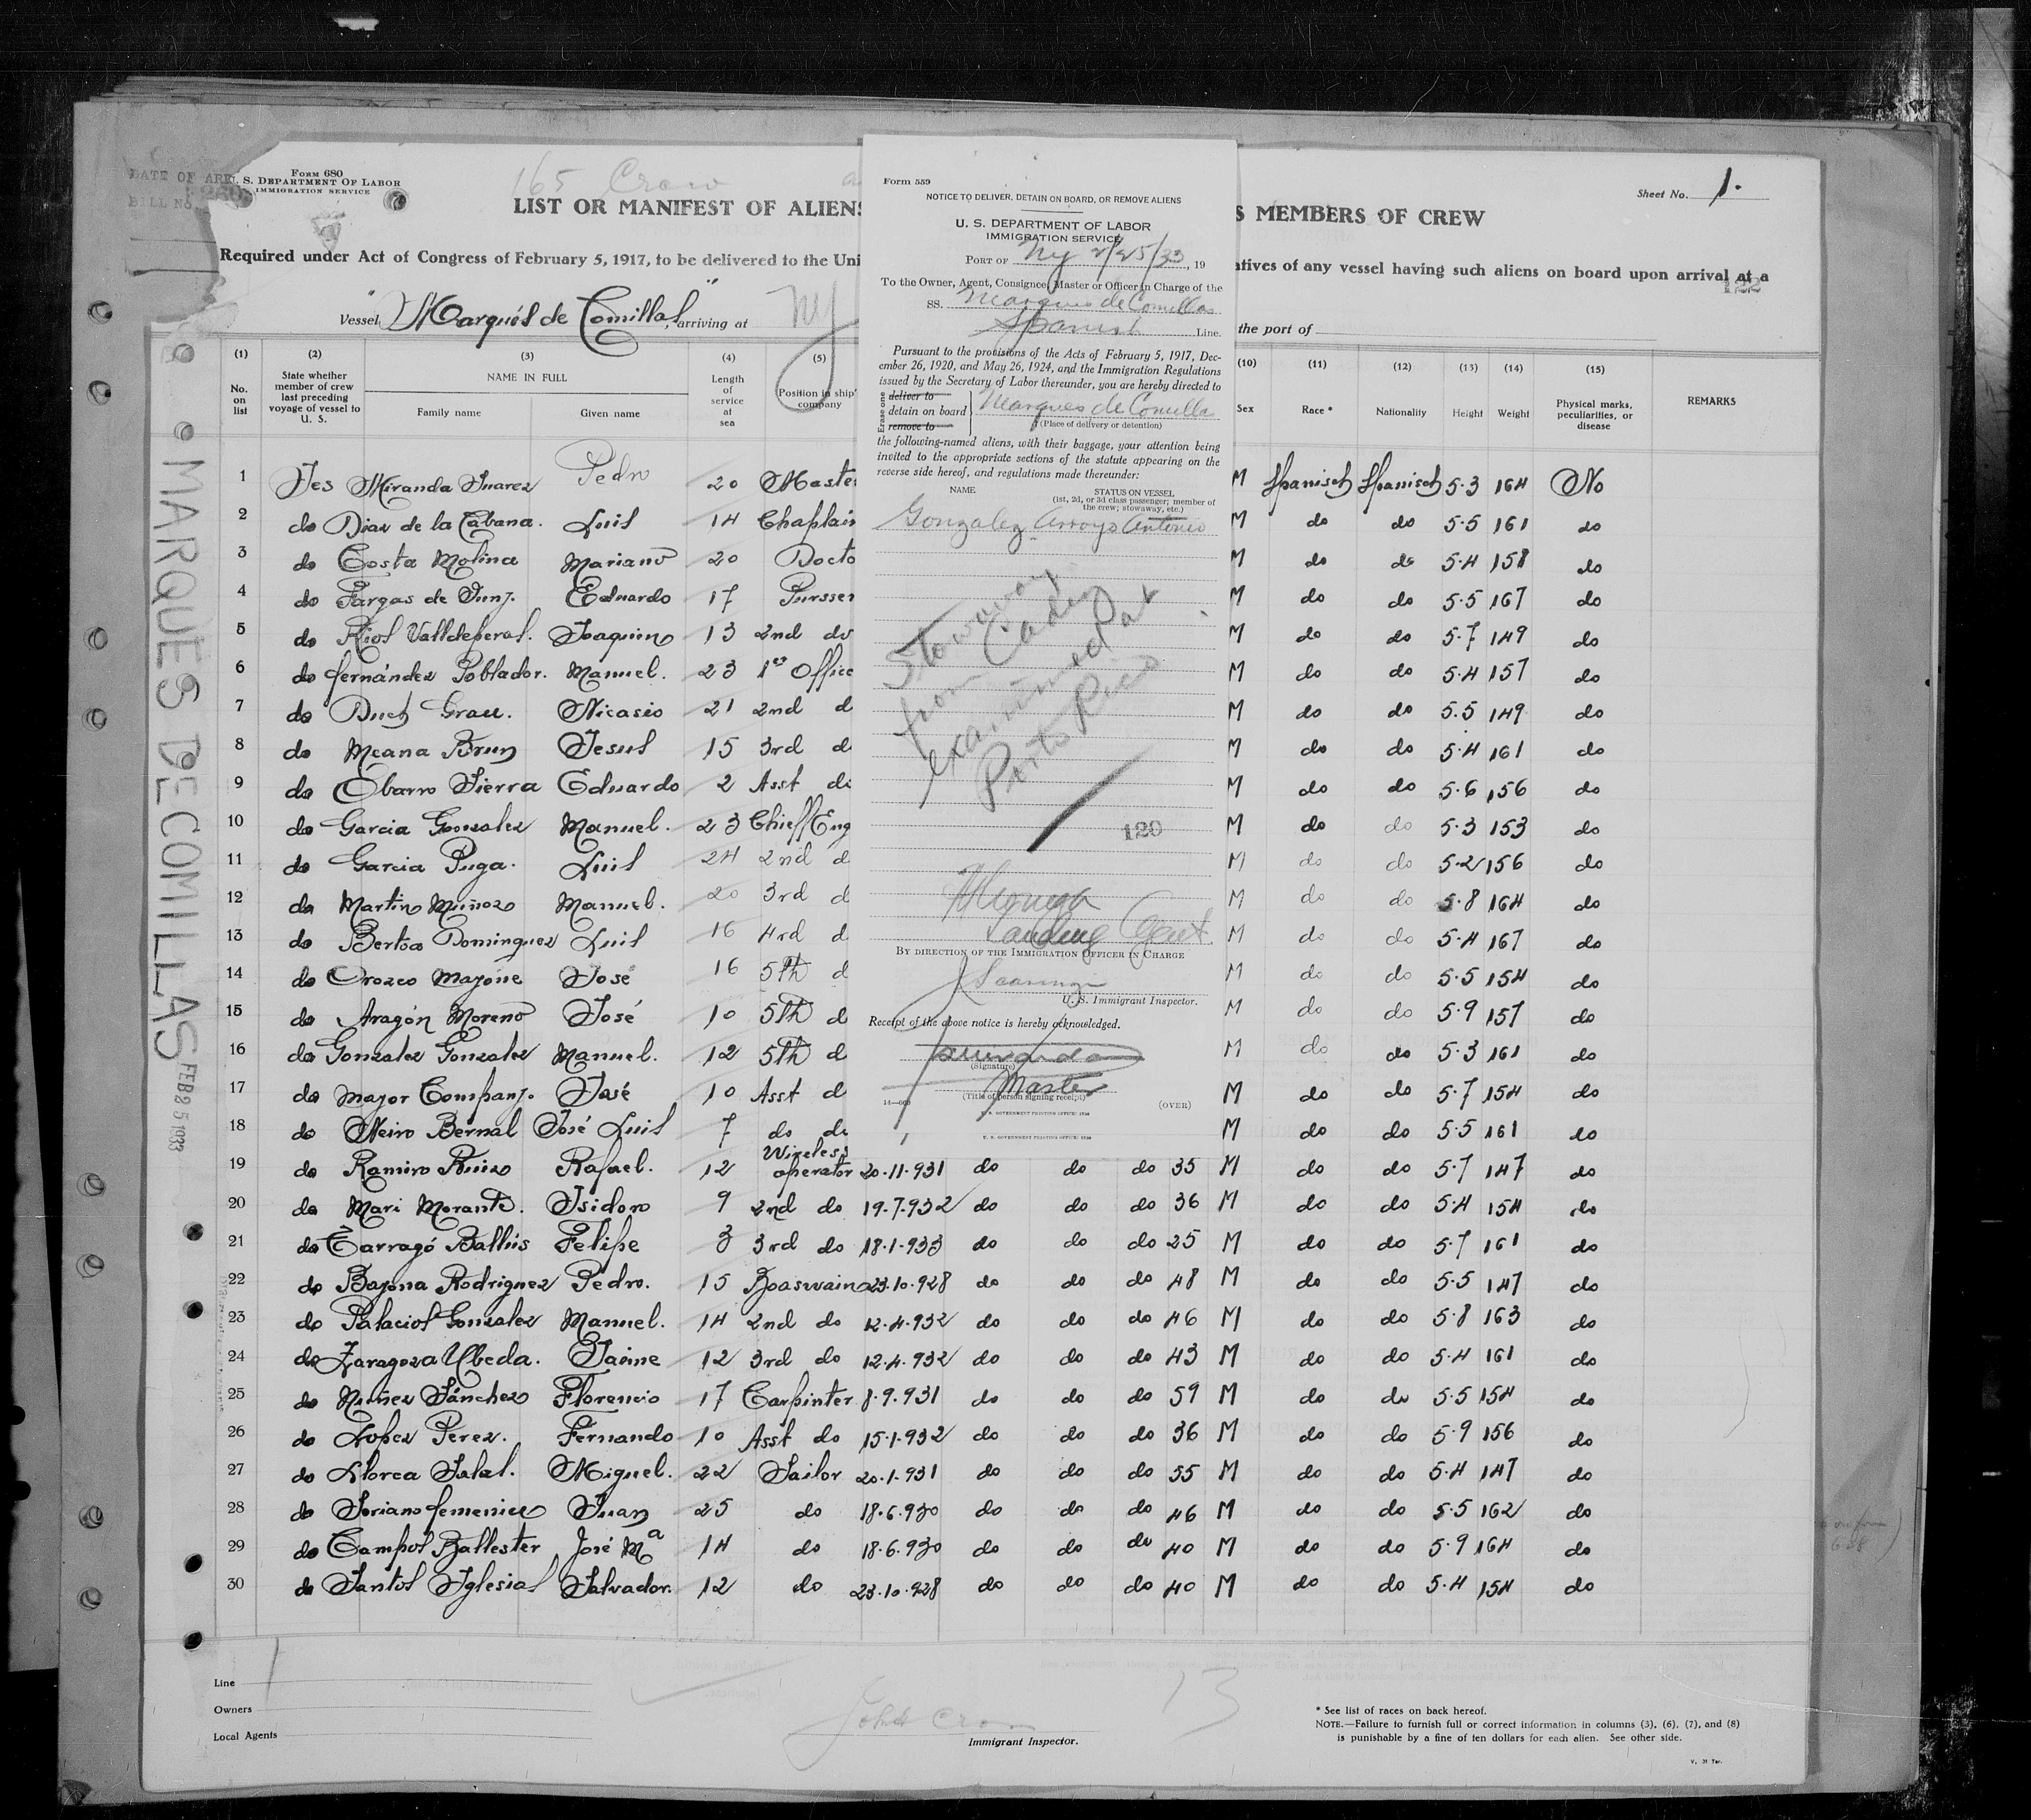 DATE OF ARR
BILL No.
Form 680
U. S. DEPARTMENT OF LABOR
IMMIGRATION SERVICE
165 Crew
Sheet No. 1.
LIST OR MANIFEST OF ALIENS
S MEMBERS OF CREW
Required under Act of Congress of February 5, 1917, to be delivered to the Uni
atives of any vessel having such aliens on board upon arrival at a
122
Vessel "Marqués de Comillas", arriving at NY
the port of
(1) (2) (3) (4) (5)
(10) (11) (12) (13) (14) (15)
No. on list
State whether member of crew last preceding voyage of vessel to U. S.
NAME IN FULL
Family name Given name
Length of service at sea
Position in ship's company
Sex Race * Nationality Height Weight
Physical marks, peculiarities, or disease
REMARKS
1 Yes Miranda Suarez Pedro 20 Maste M Spanisch Spanisch 5.3 164 No
2 do Diaz de la Cabana. Luis 14 Chaplain M do do 5.5 161 do
3 do Costa Molina Mariano 20 Docto M do do 5.4 158 do
4 do Fargas de Eduardo 17 Pursser M do do 5.5 167 do
5 do Rios Valldeperas. Joaquin 13 2nd do M do do 5.7 149 do
6 do fernández Poblador. Manuel. 23 1er Office M do do 5.4 157 do
7 do Duch Grau. Nicasio 21 2nd d M do do 5.5 149 do
8 do Meana Brun Jesus 15 3rd d M do do 5.4 161 do
9 do Obarro Sierra Eduardo 2 Asst do M do do 5.6 156 do
10 do Garcia Gonzalez Manuel. 23 Chieff Eng M do do 5.3 153 do
11 do Garcia Puga. Luis 24 2nd d M do do 5.2 156 do
12 do Martin Muñoz Manuel. 20 3rd d M do do 5.8 164 do
13 do Bertoa Dominguez Luis 16 4rd d M do do 5.4 167 do
14 do Orozco Mayone José 16 5th d M do do 5.5 154 do
15 do Aragón Moreno José 10 5th d M do do 5.9 157 do
16 do Gonzalez Gonzalez Manuel. 12 5th d M do do 5.3 161 do
17 do Mayor Company. José 10 Asst d M do do 5.7 154 do
18 do Neiro Bernal José Luis 7 do do M do do 5.5 161 do
19 do Ramiro Ruiz Rafael. 12 Wireless operator 20.11.931 do do do 35 M do do 5.7 147 do
20 do Mari Morante. Isidoro 9 2nd do 19.7.932 do do do 36 M do do 5.4 154 do
21 do Tarragó Ballús Felipe 3 3rd do 18.1.933 do do do 25 M do do 5.7 161 do
22 do Bayona Rodriguez Pedro. 15 Boaswain 23.10.928 do do do 48 M do do 5.5 147 do
23 do Palacios Gonzalez Manuel. 14 2nd do 12.4.932 do do do 46 M do do 5.8 163 do
24 do Zaragoza Ubeda. Jaime 12 3rd do 12.4.932 do do do 43 M do do 5.4 161 do
25 do Nuñez Sánchez Florencio 17 Carpinter 8.9.931 do do do 59 M do do 5.5 154 do
26 do Lopez Perez. Fernando 10 Asst do 15.1.932 do do do 36 M do do 5.9 156 do
27 do Llorca Salat. Miguel. 22 Sailor 20.1.931 do do do 55 M do do 5.4 147 do
28 do Soriano femenier Juan 25 do 18.6.930 do do do 46 M do do 5.5 162 do
29 do Campos Ballester José Mª 14 do 18.6.930 do do do 40 M do do 5.9 164 do
30 do Santos Iglesias Salvador. 12 do 23.10.928 do do do 40 M do do 5.4 154 do
Line
Owners
Local Agents
John Cron
Immigrant Inspector.
13
* See list of races on back hereof.
NOTE.—Failure to furnish full or correct information in columns (3), (6), (7), and (8)
is punishable by a fine of ten dollars for each alien. See other side.
MARQUES DE COMILLAS FEB 25 1933
Form 559
NOTICE TO DELIVER, DETAIN ON BOARD, OR REMOVE ALIENS
U. S. DEPARTMENT OF LABOR
IMMIGRATION SERVICE
PORT OF NY 2/25/33, 19
To the Owner, Agent, Consignee, Master or Officer in Charge of the
SS. Marques de Comillas
Spanish Line.
Pursuant to the provisions of the Acts of February 5, 1917, Dec-
ember 26, 1920, and May 26, 1924, and the Immigration Regulations
issued by the Secretary of Labor thereunder, you are hereby directed to
Erase one
deliver to
detain on board Marques de Comillas
remove to (Place of delivery or detention)
the following-named aliens, with their baggage, your attention being
invited to the appropriate sections of the statute appearing on the
reverse side hereof, and regulations made thereunder:
NAME STATUS ON VESSEL
(1st, 2d, or 3d class passenger; member of
the crew; stowaway, etc.)
Gonzalez Arroyo Antonio
Stowaway
from Cadiz
examined at
Porto Rico
120
Landing Agent
BY DIRECTION OF THE IMMIGRATION OFFICER IN CHARGE
U. S. Immigrant Inspector.
Receipt of the above notice is hereby acknowledged.
(Signature)
Master
(Title of person signing receipt)
(OVER)
U. S. GOVERNMENT PRINTING OFFICE
U. S. GOVERNMENT PRINTING OFFICE